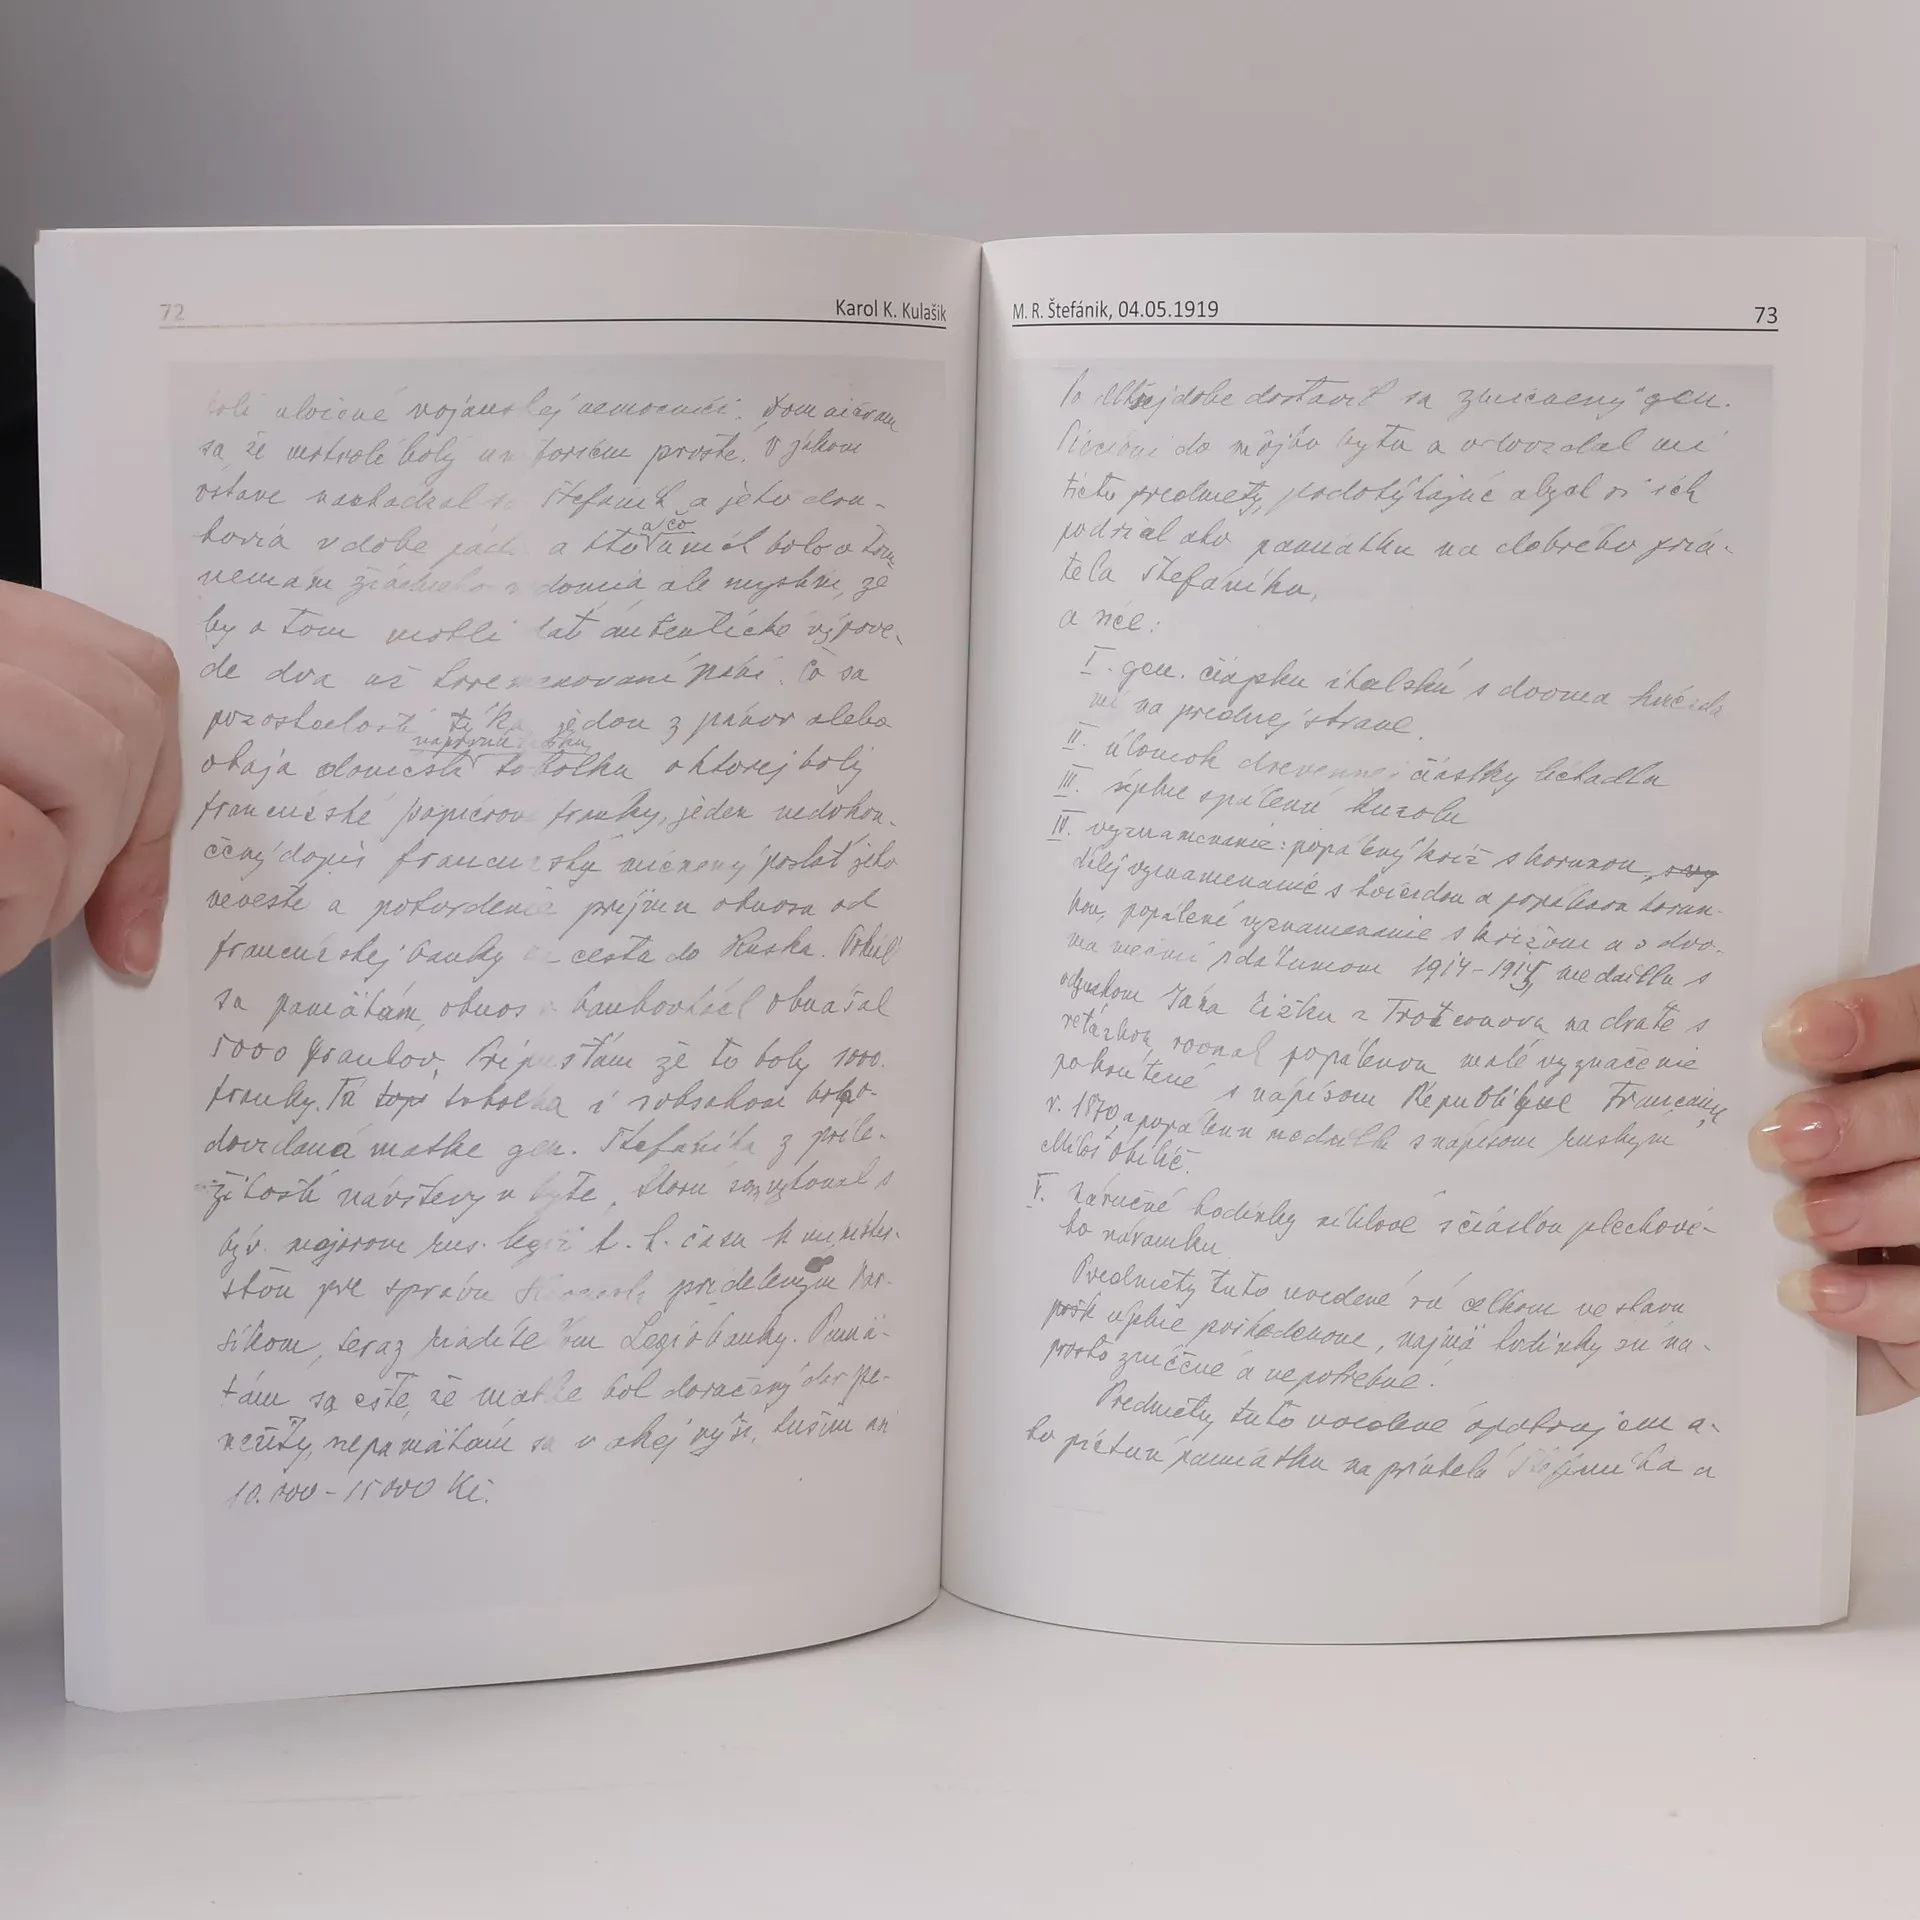 72
Karol K. Kulašik
vojanskej nemocnici.
sa, že boly prosté. V jakom
ústave nachádzal sa Štefanik a jeho dru-
hovia v dobe a kto a čo uměl bolo o tom
nemám ale myslím, že
by o tom mohli dať autentické výpove-
de dva už páni. Čo sa
pozostalosti týka, jedon z pánov alebo
obaja doniesli tobolku v ktorej boly
francúzské papierové franky, jeden nedokon-
čený dopis francuzský poslať jeho
neveste a potvrdenie príjmu obnosu od
francúzskej banky na cestu do Ruska. Pokiaľ
sa pamätám, obnos bankovkách obnášal
5000 frankov. Pripúšťám že to boly 1000.
franky. Tá tobolka i s obsahom bola o-
dovzdaná matke gen. Štefánika z príle-
žitosti návštevy v byte, ktorú som vykonal s
býv. majorom rus. legií t. č. času k minister-
stvu pre správu Slovenska pridelenym Kor-
síkom, teraz riaditeľom Legiobanky. Pamä-
tám sa ešte, že matke bol doručený dar pe-
nežitý, nepamätám sa v akej výši, tuším
10.000 - 15000 Kč.
M. R. Štefánik, 04.05.1919
73
dobe dostavil sa zmienený gen.
do môjho bytu a odovzdal mi
tieto predmety, podotýkajúc abych si ich
podržal ako pamiatku na dobrého priá-
tela Štefánika,
a síce:
I. gen. čiapku italskú s dvoma hviezda
mi na prednej strane.
II. úlomok drevennej čiastky lietadla
III. úplne spálenú
IV. vyznamenanie: popálený kríž s korunou,
vyznamenanie s hviezdou a popálenou korun-
kou, popálené vyznamenanie s krížom a s dvo-
ma mečmi s dátumom 1914-1915, medailu s
odznakom Jána Žižku z Trocnova na dráte s
retiazkou, rovnak popálenou malé vyznačenie
pokrútené s nápisom Republique Francaise
r. 1870, a popálenú medailu s nápisom ruskym
Miloš Obilič.
V. Náručné hodinky niklové s čiasťou plechové-
ho náramku.
Predmety tuto uvedené sú celkom ve stavu
úplne poškodenom, najmä hodinky sú na-
prosto zničené a nepotrebné.
Predmety tuto uvedené opatrujem a-
ko pietnú pamiatku na priateľa Štefánika a